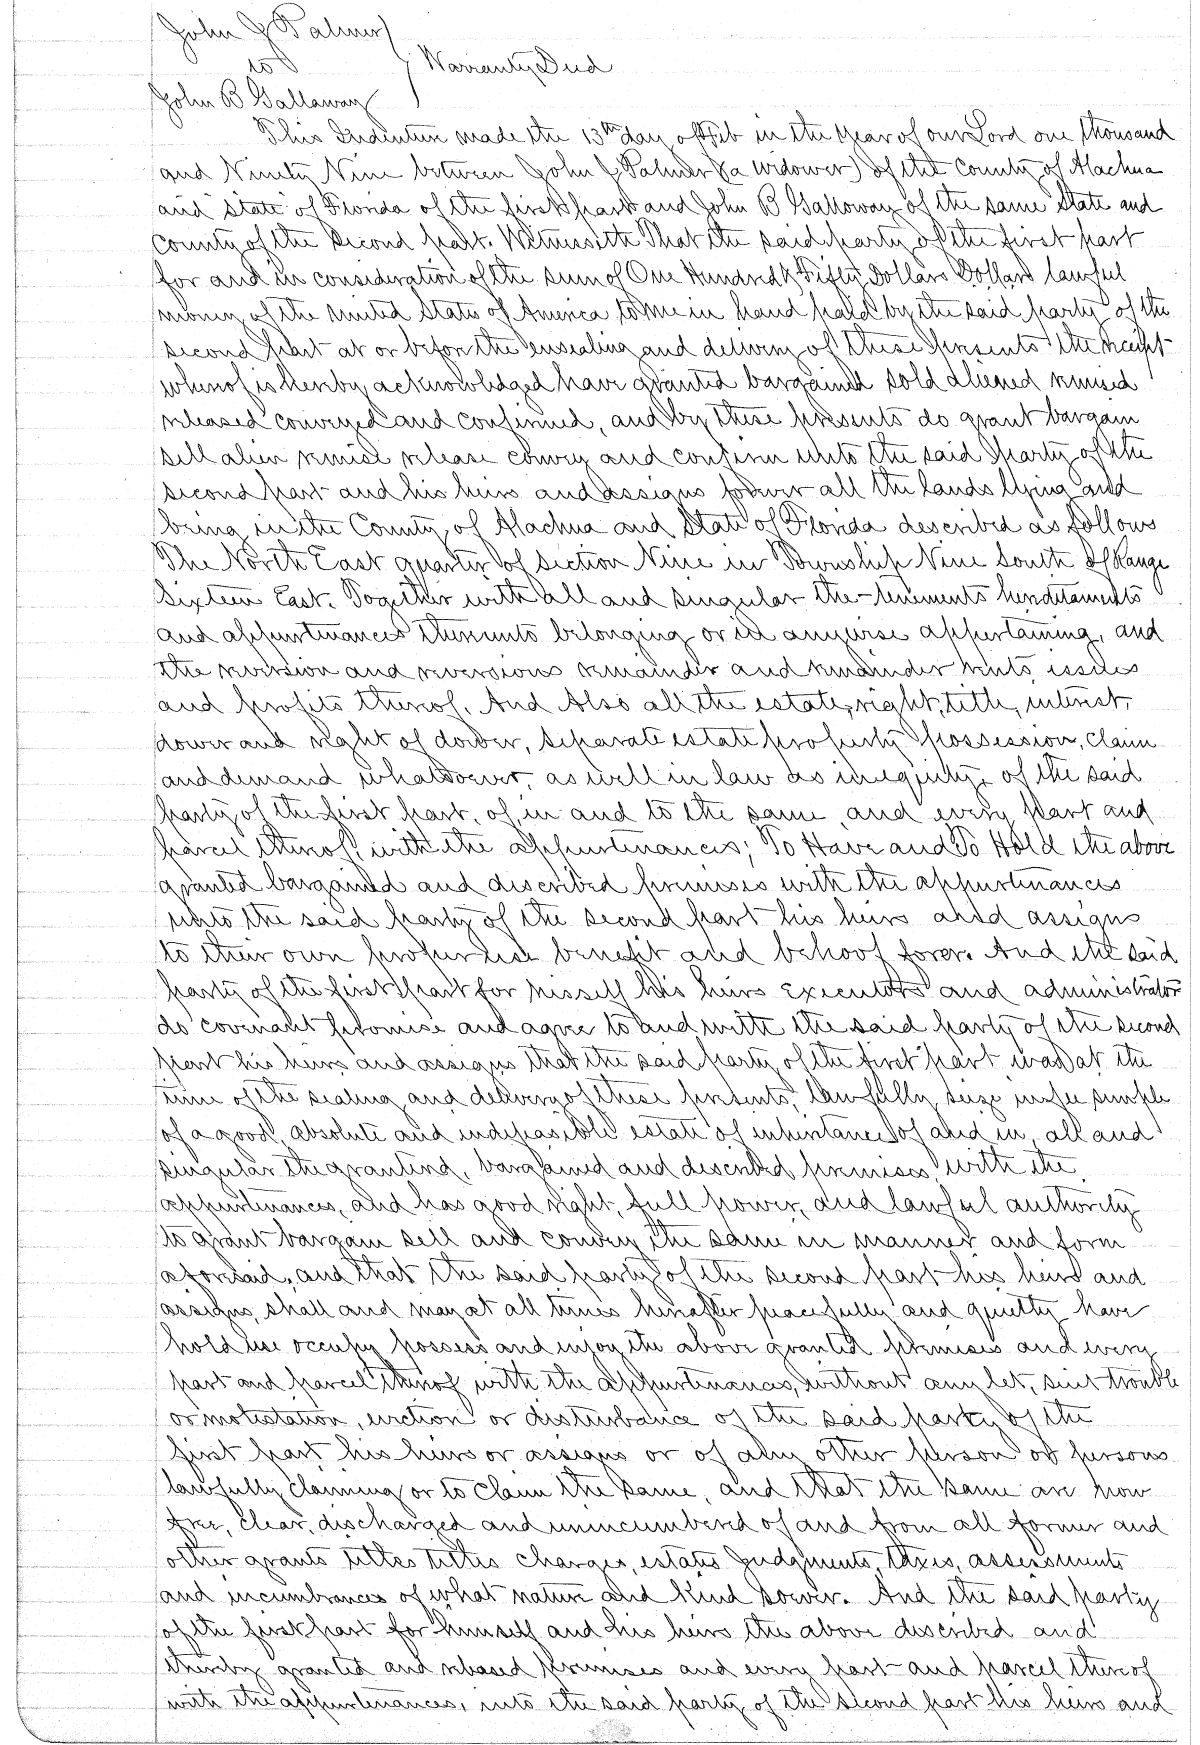 John J Palmer
to
Warranty Deed
John B Gallaway
This Indenture made the 13th day of Feb in the Year of our Lord one thousand
and Ninety Nine between John J Palmer (a widower) of the County of Alachua
and State of Florida of the first part and John B Galloway of the same State and
County of the second part. Witnesseth That the said party of the first part
for and in consideration of the sum of One Hundred & Fifty Dollars Dollars lawful
money of the United States of America to me in hand paid by the said party of the
second part at or before the ensealing and delivery of these presents the receipt
whereof is hereby acknowledged have granted bargained sold aliened remised
released conveyed and confirmed, and by these presents do grant bargain
sell alien remise release convey and confirm unto the said party of the
second part and his heirs and assigns forever all the lands lying and
being in the County of Alachua and State of Florida described as follows
The North East quarter of section Nine in Township Nine South of Range
Sixteen East. Together with all and singular the tenements hereditaments
and appurtenances thereunto belonging or in anywise appertaining, and
the reversion and reversions remainder and remainder rents issues
and profits thereof. And Also all the estate, right, title, interest,
dower and right of dower, separate estate property possession, claim
and demand whatsoever, as well in law as in equity, of the said
party of the first part, of, in and to the same, and every part and
parcel thereof, with the appurtenances; To Have and To Hold the above
granted bargained and described premises with the appurtenances
unto the said party of the second part his heirs and assigns
to their own proper use benefit and behoof forer. And the said
party of the first part for hisself his heirs executors and administrator
do covenant promise and agree to and with the said party of the second
part his heirs and assigns that the said party of the first part was at the
time of the sealing and delivery of these presents, lawfully seize in fee simple
of a good, absolute and indefeasible estate of inheritance of and in, all and
singular the grantind, bargained and described premises, with the
appurtenances, and has good right, full power, and lawful authority
to grant bargain sell and convey the same in manner and form
aforesaid, and that the said party of the second part his heirs and
assigns, shall and may at all times hereafter peacefully and quietly have
hold use occupy possess and enjoy the above granted premises and every
part and parcel thereof with the appurtenances, without any let, suit trouble
or molestation, eviction or disturbance of the said party of the
first part, his heirs or assigns or of any other person or persons
lawfully claiming or to claim the same, and that the same are now
free, clear, discharged and unincumbered of and from all former and
other grants titles titles charges, estates Judgments, taxes, assessments
and incumbrances of what nature and kind soever. And the said party
of the first part for himself and his heirs the above described and
thereby granted and released premises and every part and parcel thereof
with the appurtenances, unto the said party of the second part his heirs and